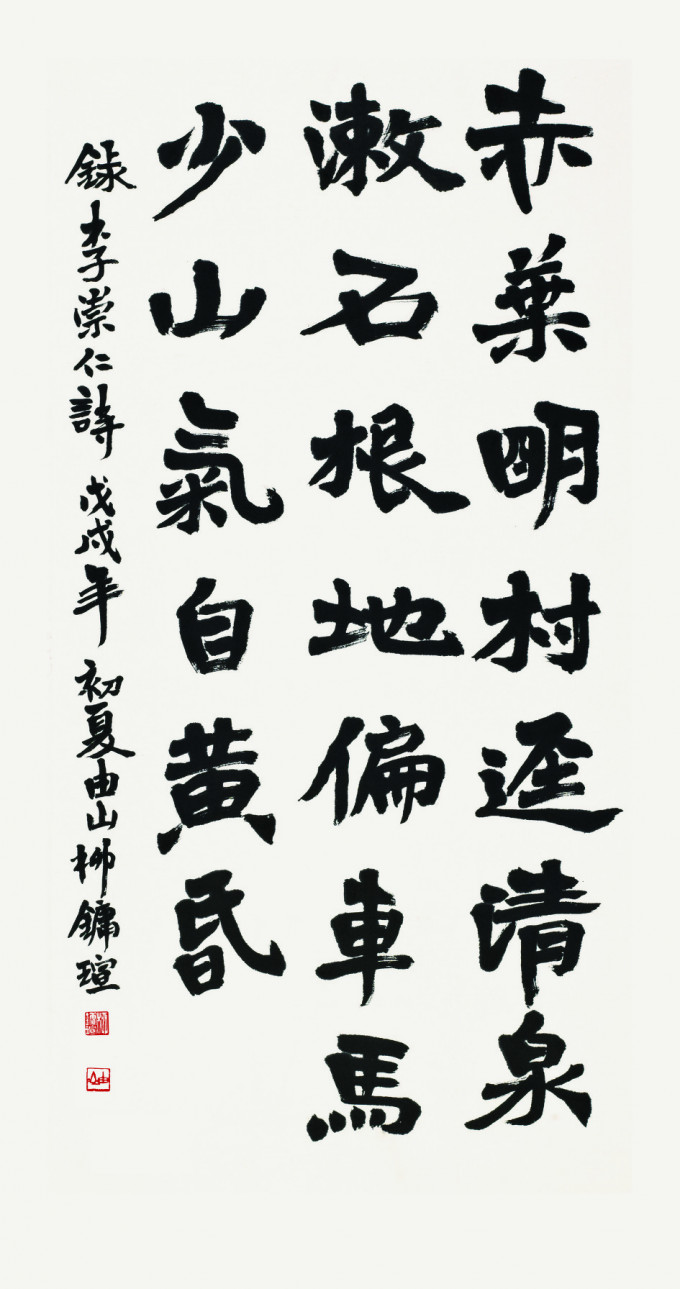 赤葉明村逕清泉
漱石根地偏車馬
少山氣自黃昏
錄李崇仁詩 戊戌年 初夏由山柳鏞瑄
由山